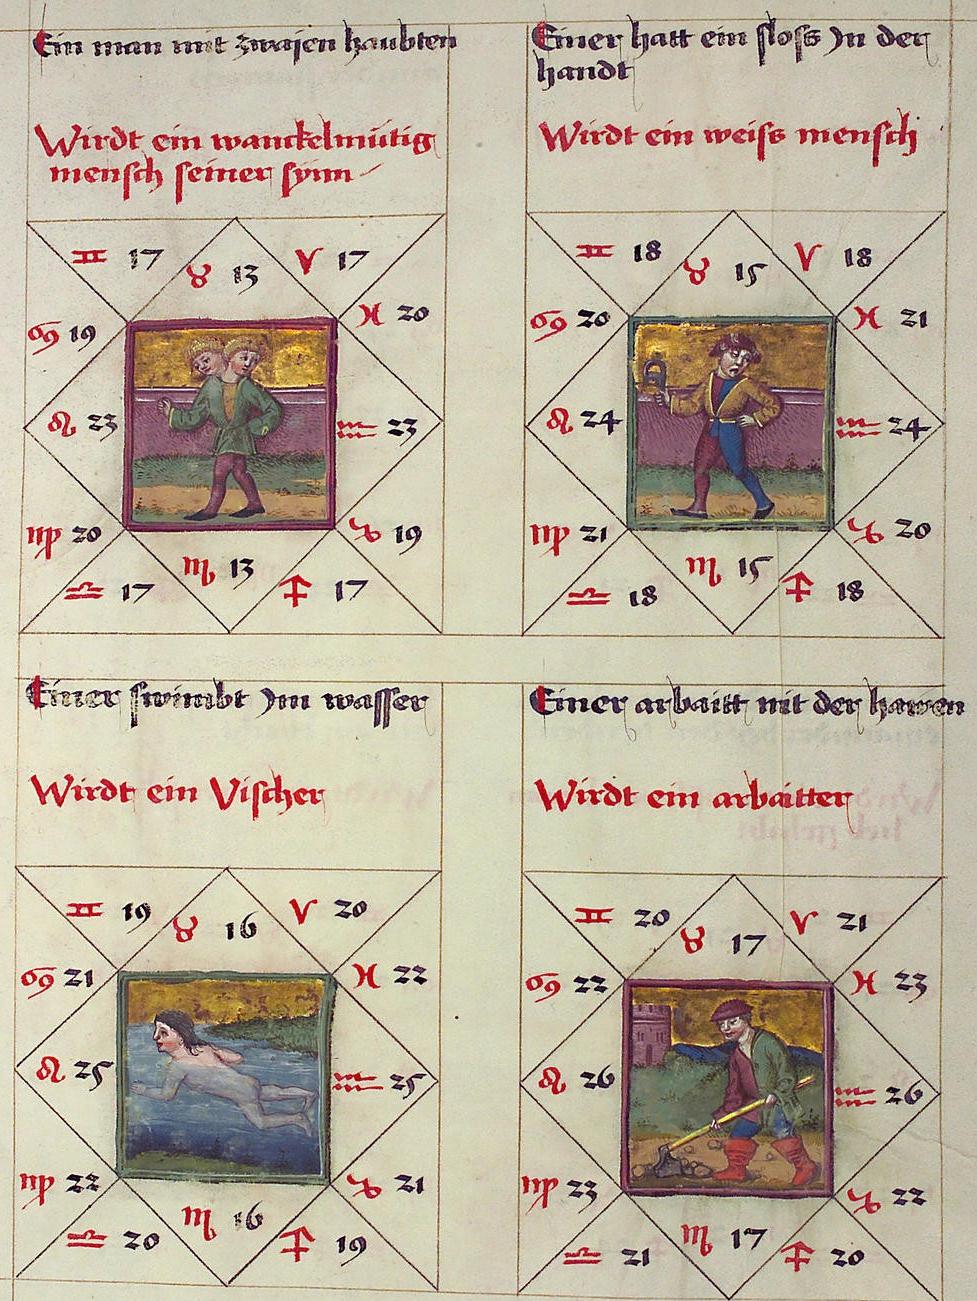 Ein man mit zwajen haubten
Wirdt ein wanckelmütig
mensch seiner synn
♊ 17
♉ 13
♈ 17
♋ 19
♓ 20
♌ 23
♒ 23
♍ 20
♑ 19
♎ 17
♏ 13
♐ 17
Einer hatt ein sloss Jn der
handt
Wirdt ein weiss mensch
♊ 18
♉ 15
♈ 18
♋ 20
♓ 21
♌ 24
♒ 24
♍ 21
♑ 20
♎ 18
♏ 15
♐ 18
Einer swimbt Jm wasser
Wirdt ein Vischer
♊ 19
♉ 16
♈ 20
♋ 21
♓ 22
♌ 25
♒ 25
♍ 22
♑ 21
♎ 20
♏ 16
♐ 19
Einer arbaitt mit der hawen
Wirdt ein arbaitter
♊ 20
♉ 17
♈ 21
♋ 22
♓ 23
♌ 26
♒ 26
♍ 23
♑ 22
♎ 21
♏ 17
♐ 20